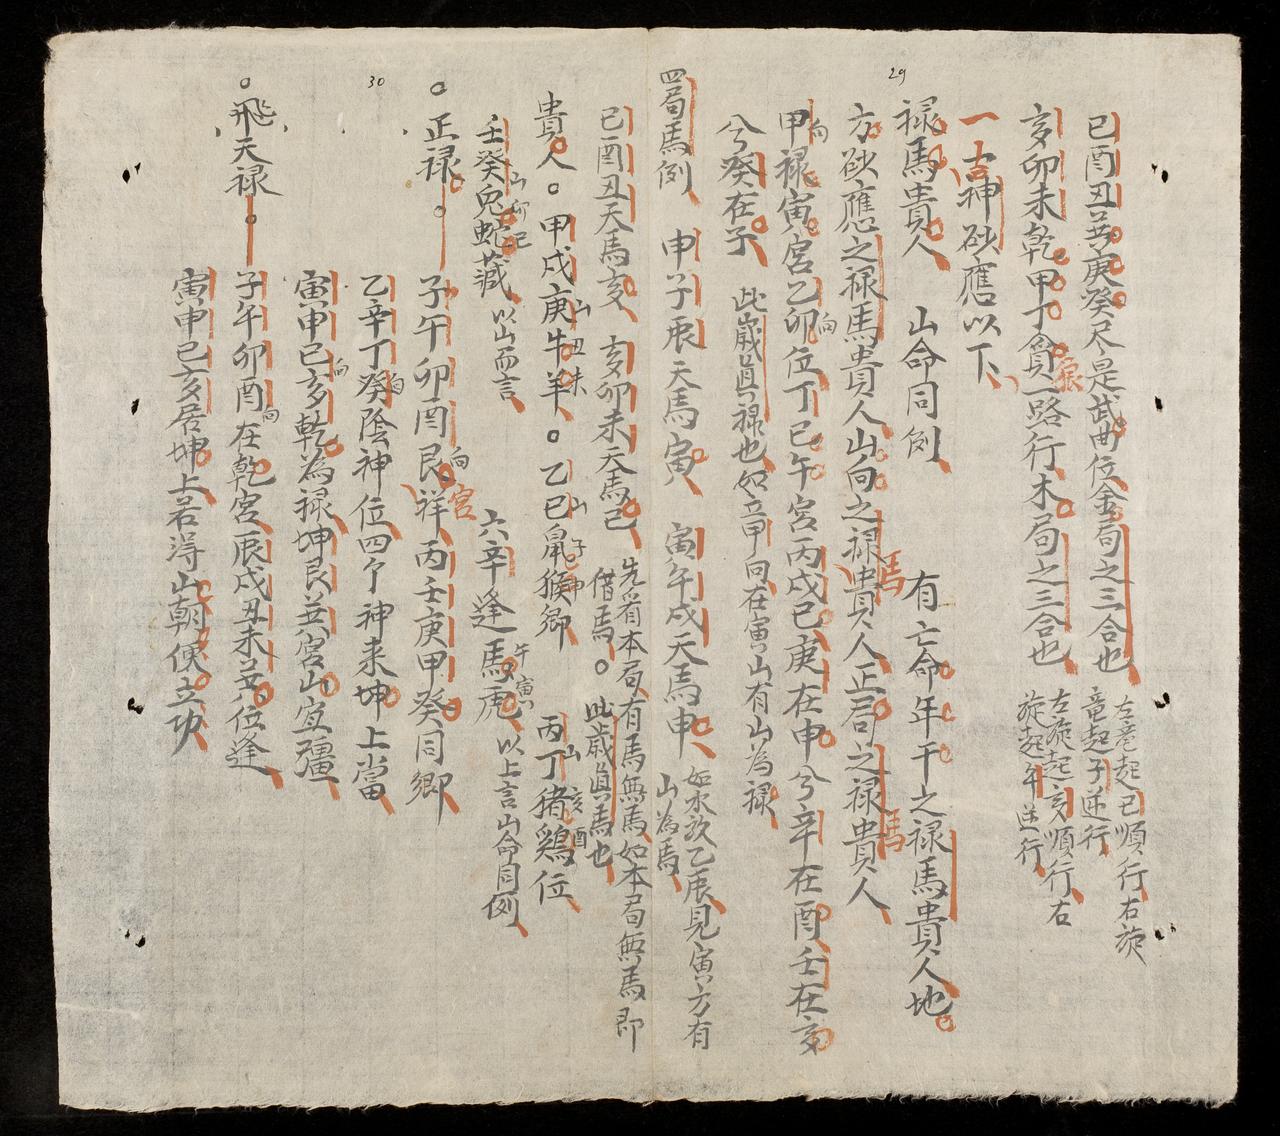 29
巳酉丑並庚癸尽是武曲位金局之三合也
左竜起巳順行右旋
竜起子逆行
亥卯未乾甲丁貪狼一路行木局之三合也
左旋起亥順行右
旋起午逆行
一吉神砂應以下
禄馬貴人 山命同例 有亡命年干之禄馬貴人地
方砂應之禄馬貴人山向之禄馬貴人正局之禄馬貴人
甲向禄寅宮乙卯向位丁巳午宮丙戊巳庚在申兮辛在酉壬在亥
兮癸在子 此歳眞禄也如立甲向在寅山有山為禄
四局馬例 申子辰天馬寅 寅午戌天馬申
如水放乙辰見寅方有
山為馬
巳酉丑天馬亥 亥卯未天馬巳
先看本局有馬無馬如本局無馬即
借馬○此歳眞馬也
貴人○甲戊庚牛羊○乙巳鼠猴郷 丙丁猪鷄位
山丑未 山子申 山亥酉
壬癸兎蛇藏 以山而言 六辛逢馬虎 以上言山命同例
山卯巳 午寅
30
○正禄○ 子午卯酉艮向宮祥丙壬庚甲癸同郷
乙辛丁癸向陰神位四个神来坤上當
寅申巳亥向乾為禄坤艮並宮山宜彊
○飛天禄○ 子午卯酉向在乾宮辰戌丑未並位逢
寅申巳亥居坤上若淂山朝便立功